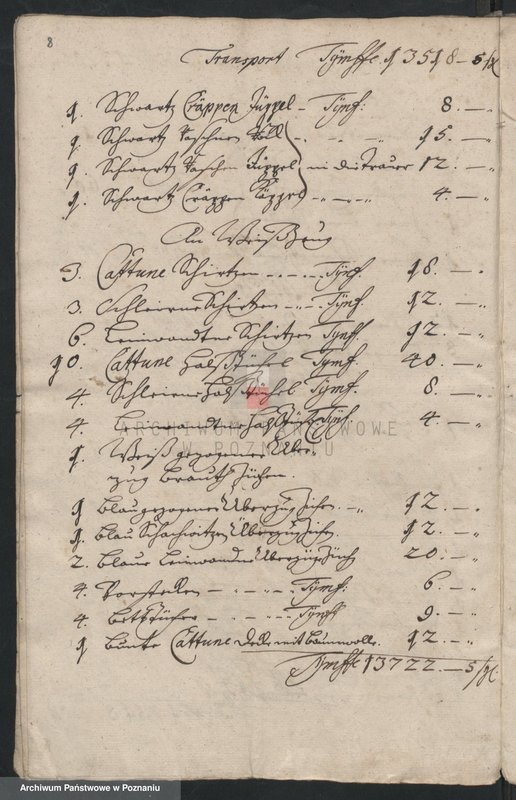 8
Transport Tÿmffe 13518 — 5 ßgl
1. Schwartz Cräppen Juppel — Tÿmf: 8. — „
1. Schwartz Taschnen 15. — „
1. Schwartz Taschen Juppel in die Trauer 12. — „
1. Schwartz Cräppen Käppel 4. — „
An Weißzeug
3. Cattune Schirtzen — Tÿmf. 18. — „
3. Schleirne Schirtzen — Tÿmf. 12. — „
6. Leinwandtne Schirtzen Tÿmff. 12. — „
10. Cattune Halßtüchel Tÿmf. 40. — „
4. Schleirne Halßtüchel Tÿmf. 8. — „
4. Leinwandtne Halßtüchel Tÿmf. 4. — „
1. Weiß gezogener Über-
zug Brauth Züchen.
1 Blau gezogener Überzug Züchen. — „ 12. — „
1. Blau Schachwitzen Überzug Züchen. 12. — „
2. Blaue Leinwandne Überzüge Züch 20. — „
4. Vorstecken — Tÿmf: 6. — „
4. Bettücher — Tÿmff 9. — „
1 Bunte Cattune Decke mit Baumwolle. 12. — „
Tÿmffe 13722. — 5 ßgl.
ARCHIWUM PAŃSTWOWE
W POZNANIU
Archiwum Państwowe w Poznaniu